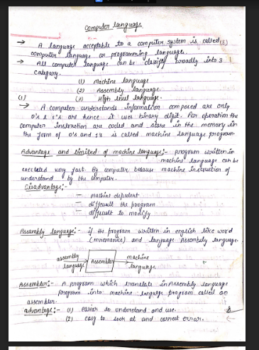 Computer Language
→ A language acceptable to a computer system is called
computer language or programming language.
→ All computer language can be broadly into 3
category.
(1) Machine language
(2) Assembly language
(3) High level language.
(1) → A computer understands information composed are only
0's & 1's are hence it use binary digit. For operation the
computer instruction are coded and store in the memory in
the form of 0's and 1's is called machine language program
Advantage and limited of machine language:- program written in
machine language can be
executed very fast By computer because machine instruction of
understand by the computer.
Disadvantage:-
— machine dependent
— difficult to program
— difficult to modify
Assembly language:- if the program written in english like word
(mnemonics) and language Assembly language
assembly language → Assembler → machine language
Assembler:- A program which translate Assembly language
program into machine language program called an
assembler.
advantage:- (1) easier to understand and use.
(2) easy to and correct error.